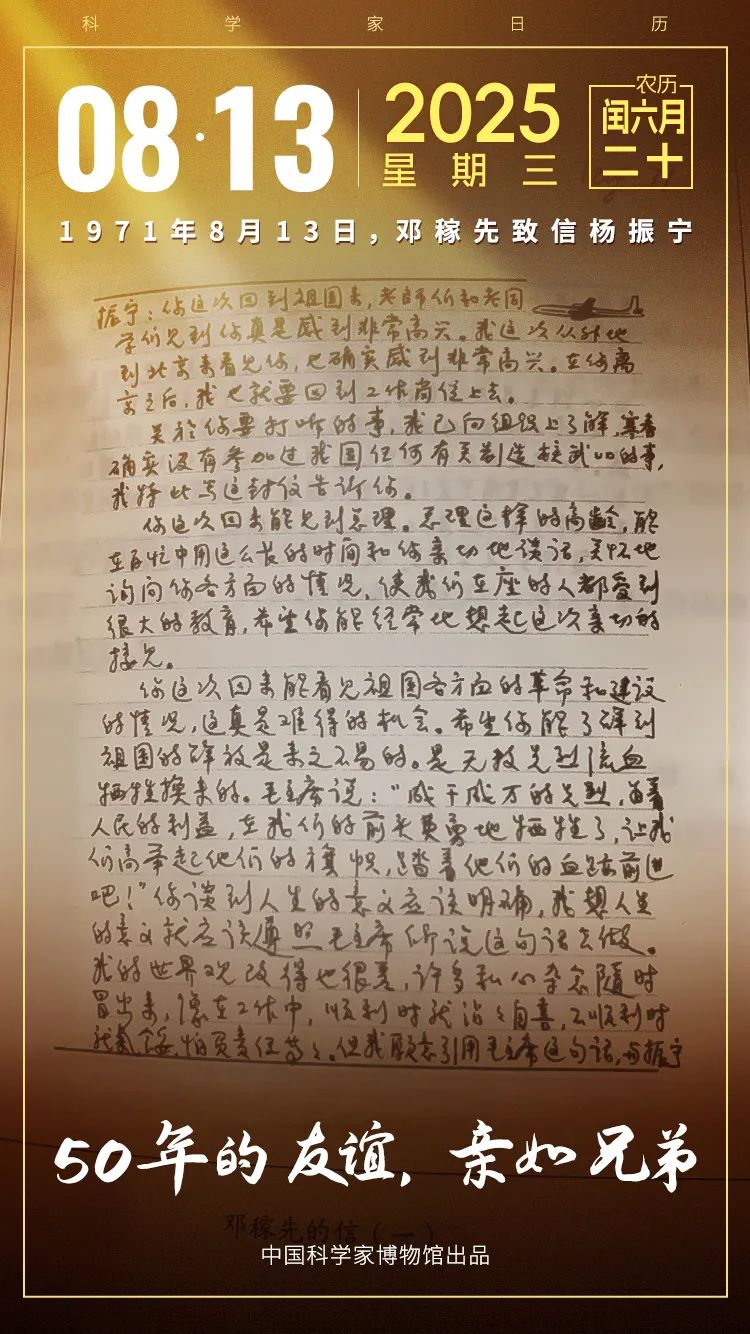 科学家日历
08·13
2025
星期三
农历
闰六月
二十
1971年8月13日，邓稼先致信杨振宁
振宁：你这次回到祖国来，老师们和老同
学们见到你真是感到非常高兴。我这次从外地
到北京来看见你，也确实感到非常高兴。在你离
京之后，我也就要回到工作岗位上去。
关于你要打听的事，我已向组织上了解，寒春
确实没有参加过我国任何有关制造核武器的事，
我特此写这封信告诉你。
你这次回来能见到总理。总理这样的高龄，能
在百忙中用这么长的时间和你亲切地谈话，关怀地
询问你各方面的情况，使我们在座的人都受到
很大的教育，希望你能经常地想起这次亲切的
接见。
你这次回来能看见祖国各方面的革命和建设
的情况，这真是难得的机会。希望你能了解到
祖国的解放是来之不易的。是无数先烈流血
牺牲换来的。毛主席说：“成千成万的先烈，为着
人民的利益，在我们的前头英勇地牺牲了，让我
们高举起他们的旗帜，踏着他们的血迹前进
吧！”你谈到人生的意义应该明确，我想人生
的意义就应该遵照毛主席所说这句话去做。
我的世界观改得也很差，许多私心杂念随时
冒出来，像在工作中，顺利时就沾沾自喜，不顺利时
就气馁，怕负责任等等。但我愿意引用毛主席这句话，与振宁
50年的友谊，亲如兄弟
邓稼先的信（一）
中国科学家博物馆出品